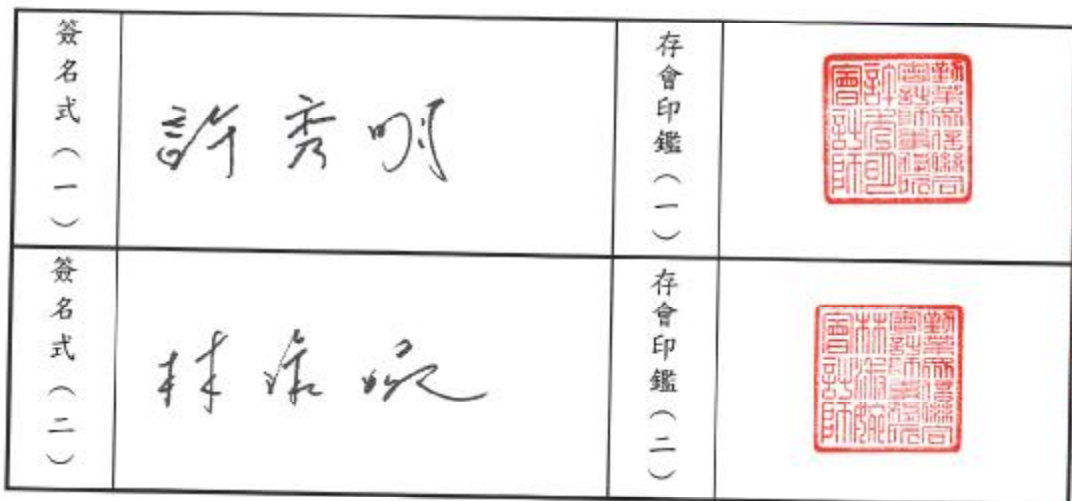 簽名式（一）
許秀明
存會印鑑（一）
勤業眾信聯合
會計師事務所
許秀明
會計師
簽名式（二）
林淑婉
存會印鑑（二）
勤業眾信聯合
會計師事務所
林淑婉
會計師